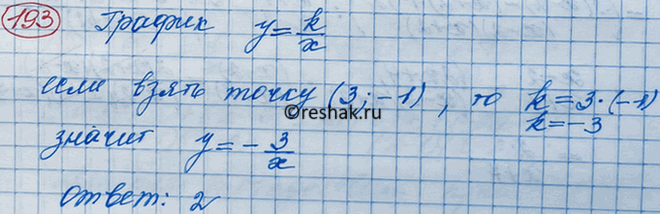 193 График y = k/x
если взять точку (3; -1), то k = 3·(-1)
k = -3
©reshak.ru
значит y = - 3/x
ответ: 2